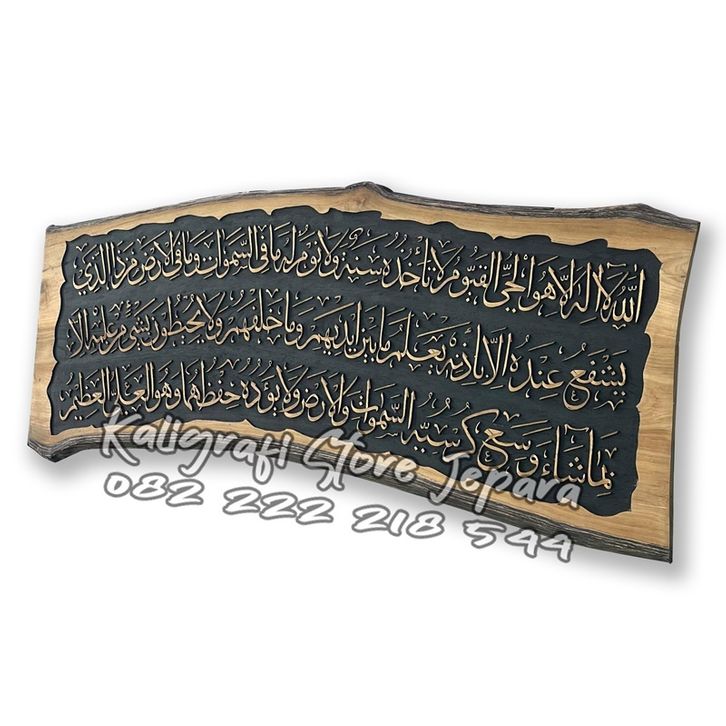 الله لا اله الا هو الحي القيوم لا تأخذه سنة ولا نوم له ما في السموات وما في الارض من ذا الذي
يشفع عنده الا باذنه يعلم ما بين ايديهم وما خلفهم ولا يحيطون بشيء من علمه الا
بما شاء وسع كرسيه السموات والارض ولا يؤده حفظهما وهو العلي العظيم
Kaligrafi Store Jepara
082 222 218 544